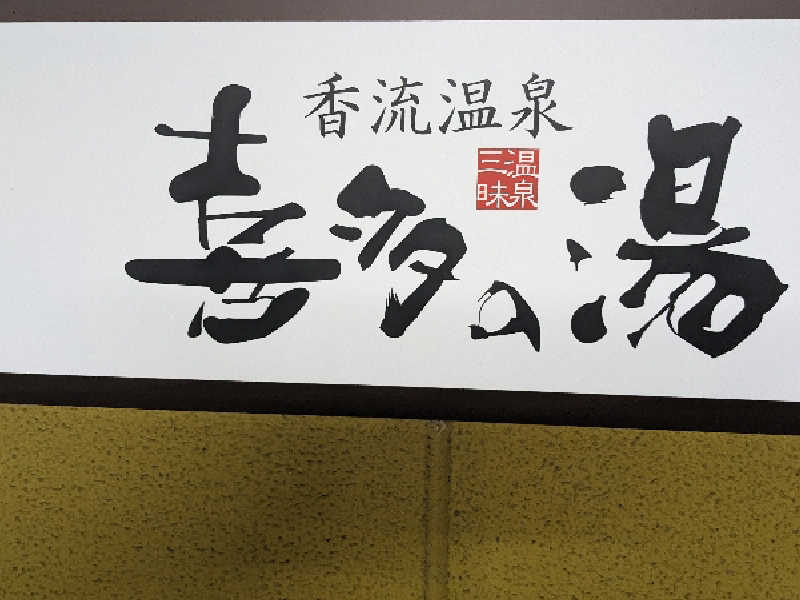 香流温泉
喜多の湯
温泉
三昧